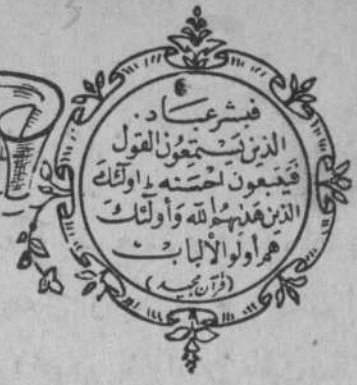 فبشر عباد
الذين يستمعون القول
فيتبعون احسنه ط اولئك
الذين هديهم الله وأولئك
هم أولو الألباب
(قرآن مجيد)